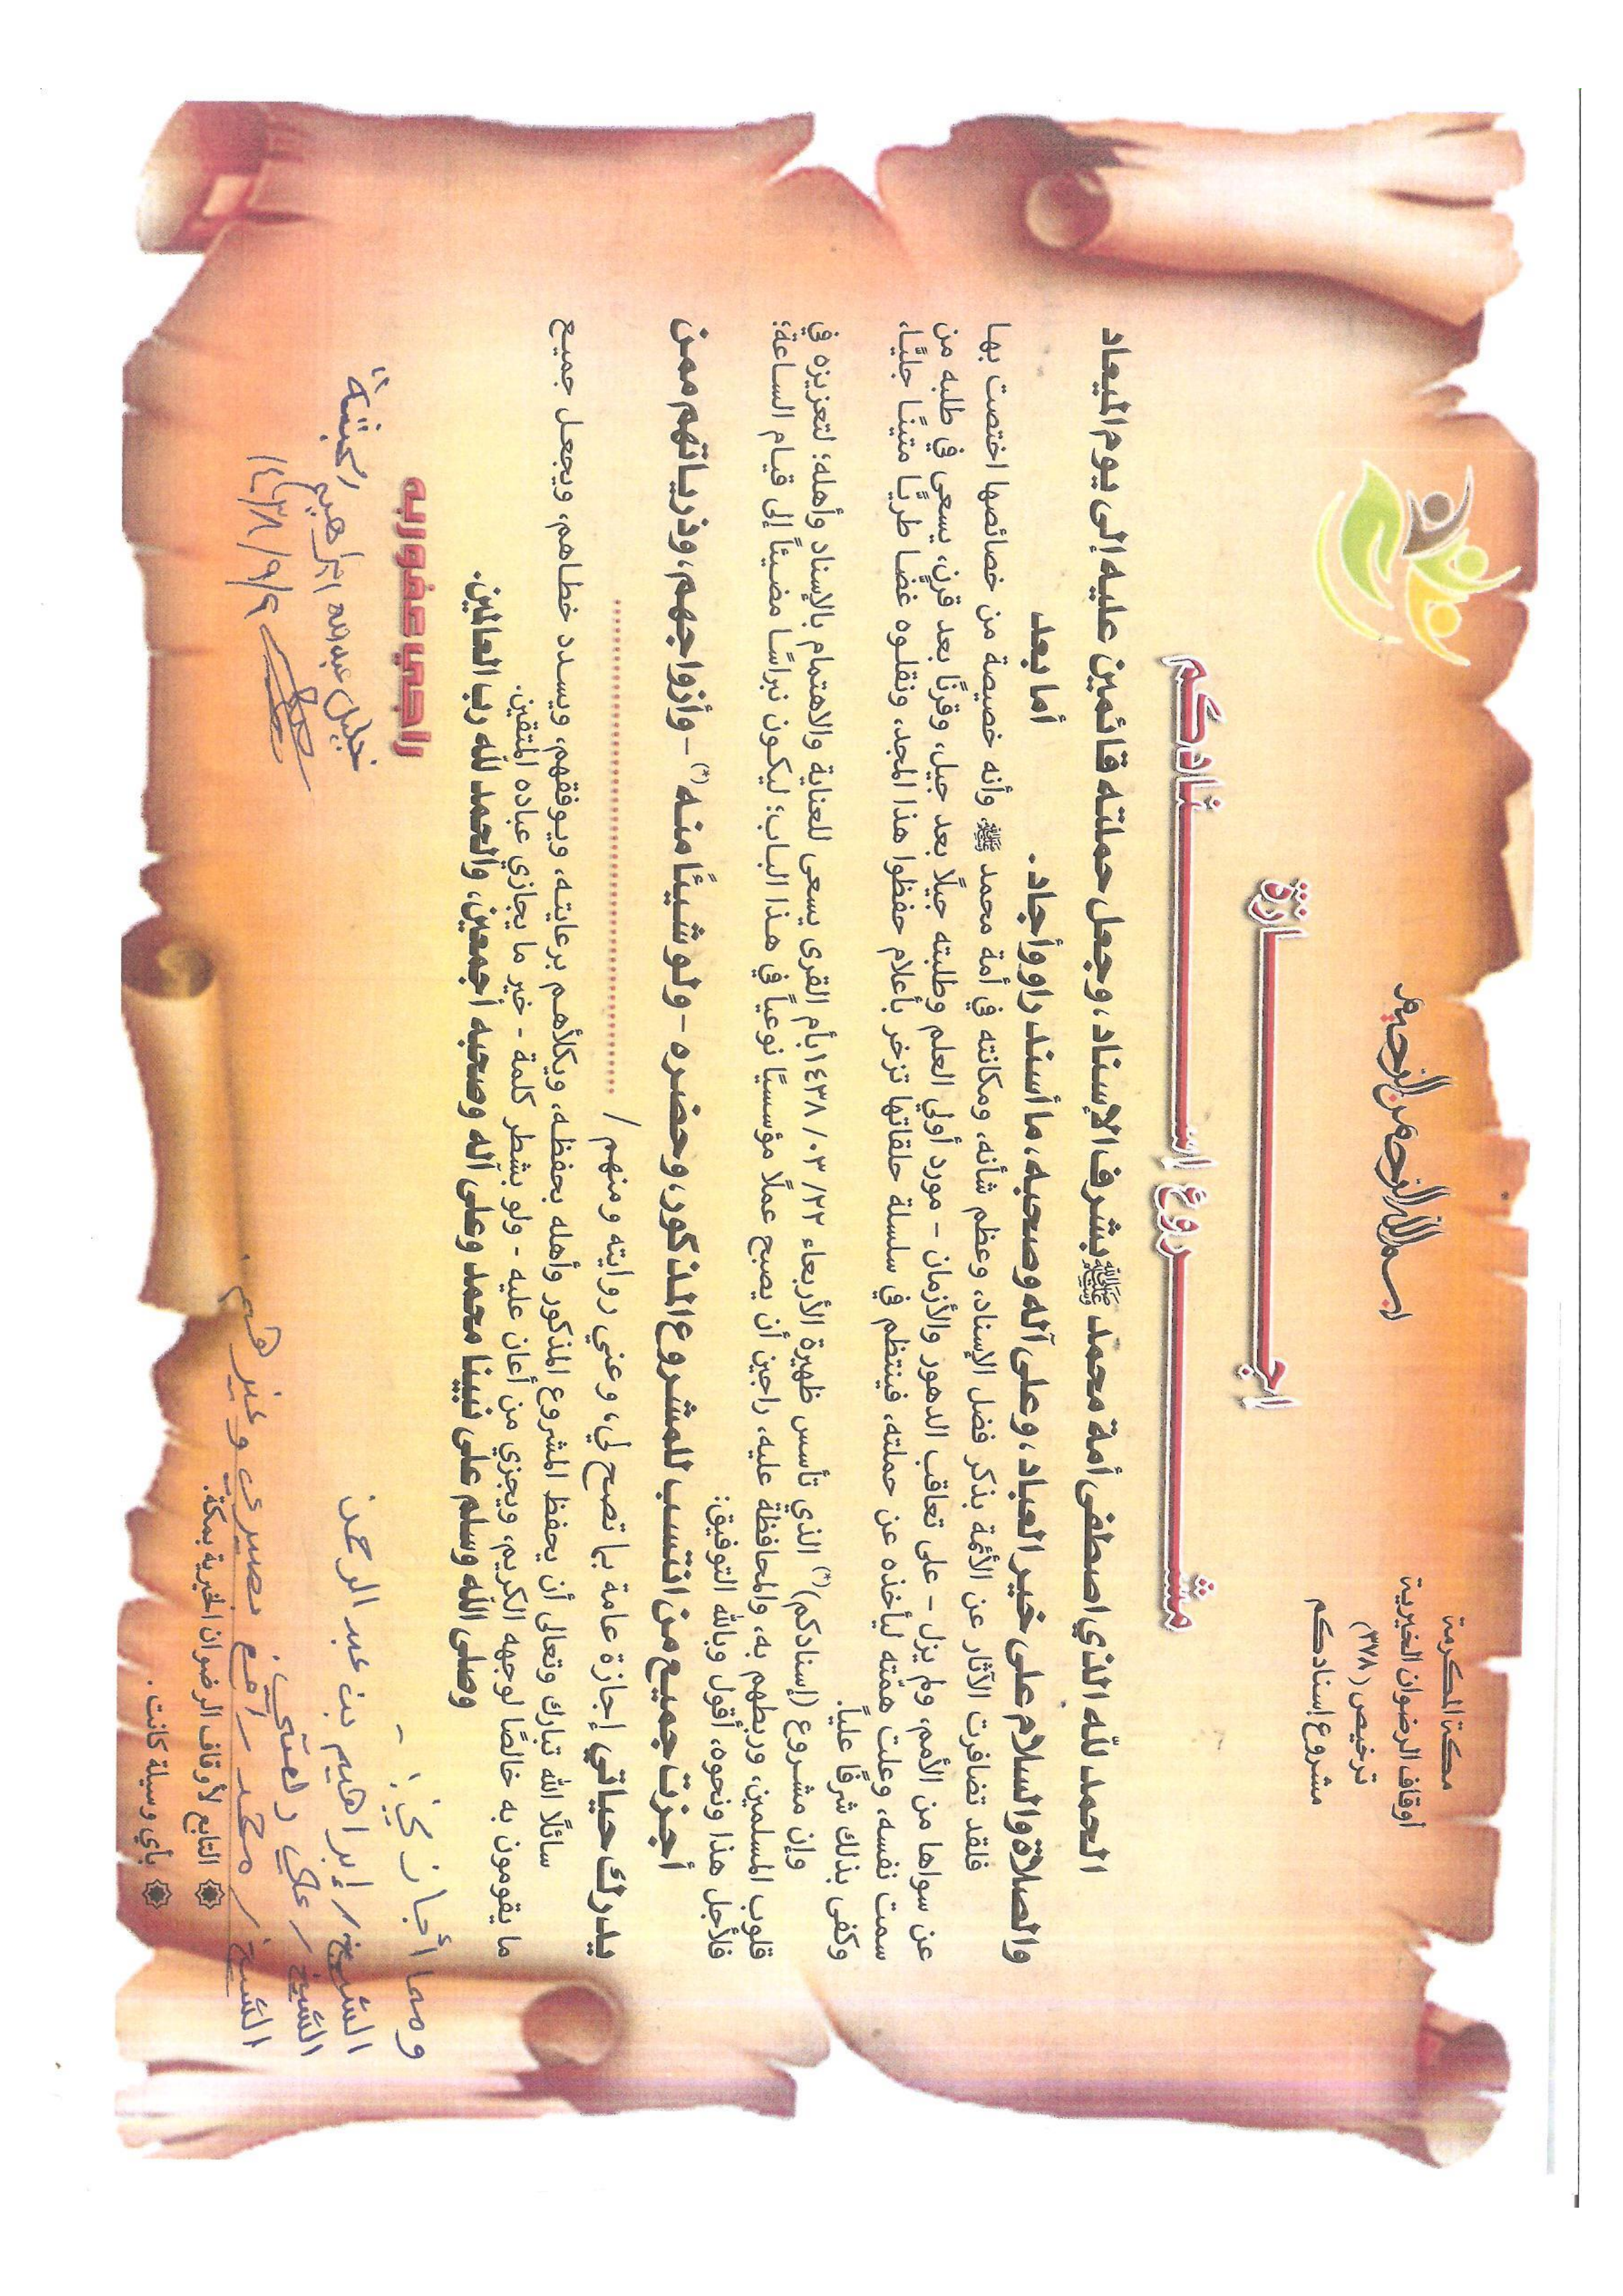 بسم الله الرحمن الرحيم
مكة المكرمة
أوقاف الرضوان الخيرية
ترخيص (٣٧٨)
مشروع إسنادكم
اجـــازة
مشـــروع إســـنادكم
الحمد لله الذي اصطفى أمة محمد ﷺ بشرف الإسناد، وجعل حملته قائمين عليه إلى يوم الميعاد
والصلاة والسلام على خير العباد، وعلى آله وصحبه، ما أسند راو وأجاد. أما بعد
فلقد تضافرت الآثار عن الأئمة بذكر فضل الإسناد، وعظم شأنه، ومكانته في أمة محمد ﷺ، وأنه خصيصة من خصائصها اختصت بها
عن سواها من الأمم، ولم يزل - على تعاقب الدهور والأزمان - مورد أولي العلم وطلبته جيلًا بعد جيل، وقرنًا بعد قرن، يسعى في طلبه من
سمت نفسه، وعلت همّته ليأخذه عن حملته، فينتظم في سلسلة حلقاتها تزخر بأعلام حفظوا هذا المجد، ونقلوه غضا طريًا متينًا جليًا،
وكفى بذلك شرفًا عليًا.
وإن مشروع (إسنادكم)(*) الذي تأسس ظهيرة الأربعاء ٢٢/ ٠٣/ ١٤٣٨ بأم القرى يسعى للعناية والاهتمام بالإسناد وأهله؛ لتعزيزه في
قلوب المسلمين، وربطهم به، والمحافظة عليه، راجين أن يصبح عملًا مؤسسيًا نوعياً في هذا الباب؛ ليكون نبراسًا مضيئًا إلى قيام الساعة؛
فلأجل هذا ونحوه، أقول وبالله التوفيق:
أجزت جميع من انتسب للمشروع المذكور، وحضره - ولو شيئًا منه(*) - وأزواجهم، وذرياتهم ممن
يدرك حياتي إجازة عامة بما تصح لي، وعني روايته ومنهم / ..............................
سائلًا الله تبارك وتعالى أن يحفظ المشروع المذكور وأهله بحفظه، ويكلأهم برعايته، ويوفقهم، ويسدد خطاهم، ويجعل جميع
ما يقومون به خالصًا لوجهه الكريم، ويجزي من أعان عليه - ولو بشطر كلمة - خير ما يجازي عباده المتقين.
وصلى الله وسلم على نبينا محمد وعلى آله وصحبه أجمعين، والحمد لله رب العالمين.
راجي عفو ربه
خليل عبد الله ابراهيم
١٤٣٨/٩/٩
ومما أجازني: -
الشيخ / إبراهيم بن عبد الرحمن
الشيخ / علي
الشيخ / محمد رافع بصيري وغيرهم.
التابع لأوقاف الرضوان الخيرية بمكة.
بأي وسيلة كانت.